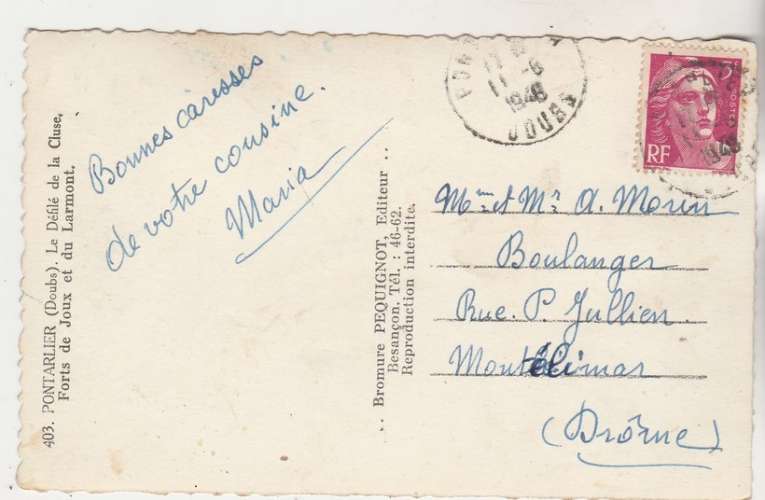 403. PONTARLIER (Doubs). Le Défilé de la Cluse,
Forts de Joux et du Larmont.
Bonnes caresses
de votre cousine.
Maria
.. Bromure PEQUIGNOT, Editeur ..
Besançon. Tél. : 46-62.
Reproduction interdite.
11-6
1948
DOUBS
RF
POSTES
1948
Mme et Mr A. Morin
Boulanger
Rue. P. Jullien
Montélimar
(Drôme)